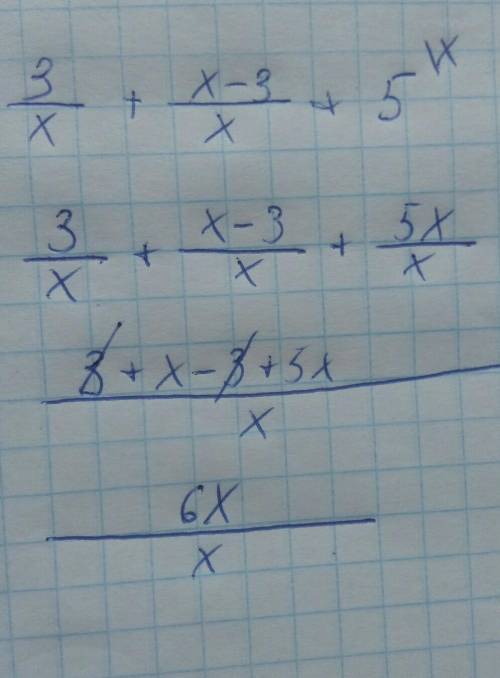 3/x + x-3/x + 5 \x
3/x + x-3/x + 5x/x
3+x-3+5x/x
6x/x